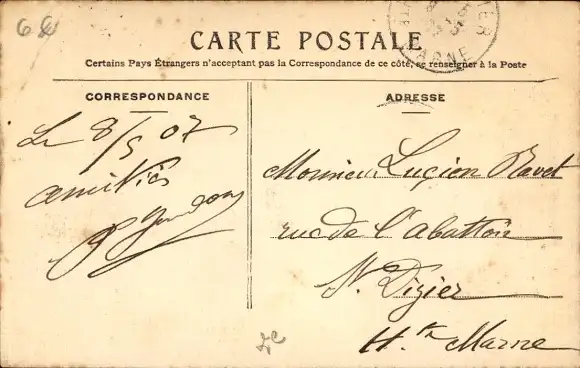 68
CARTE POSTALE
Certains Pays Étrangers n'acceptant pas la Correspondance de ce côté, se renseigner à la Poste
CORRESPONDANCE
Le 8/5 07
amitiés
ADRESSE
Monsieur Lucien Ravet
rue de l'abattoir
St. Dizier
Hte Marne